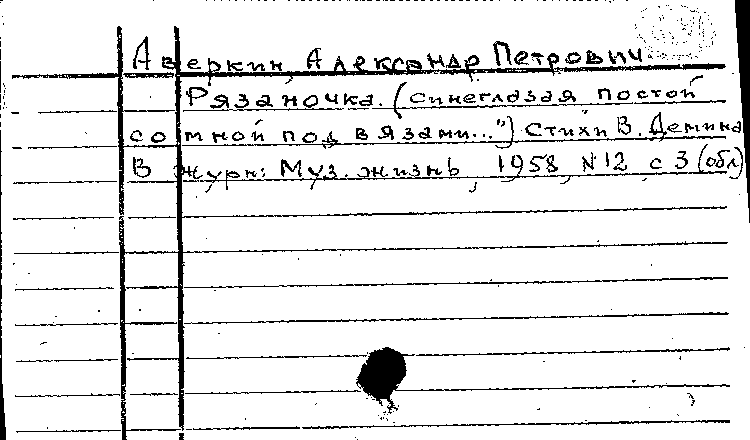 Аверкин, Александр Петрович.
Рязаночка. (синеглазая постой
со мной под вязами...") Стихи В. Демина
В журн: Муз. жизнь, 1958, N12, с 3 (обл)